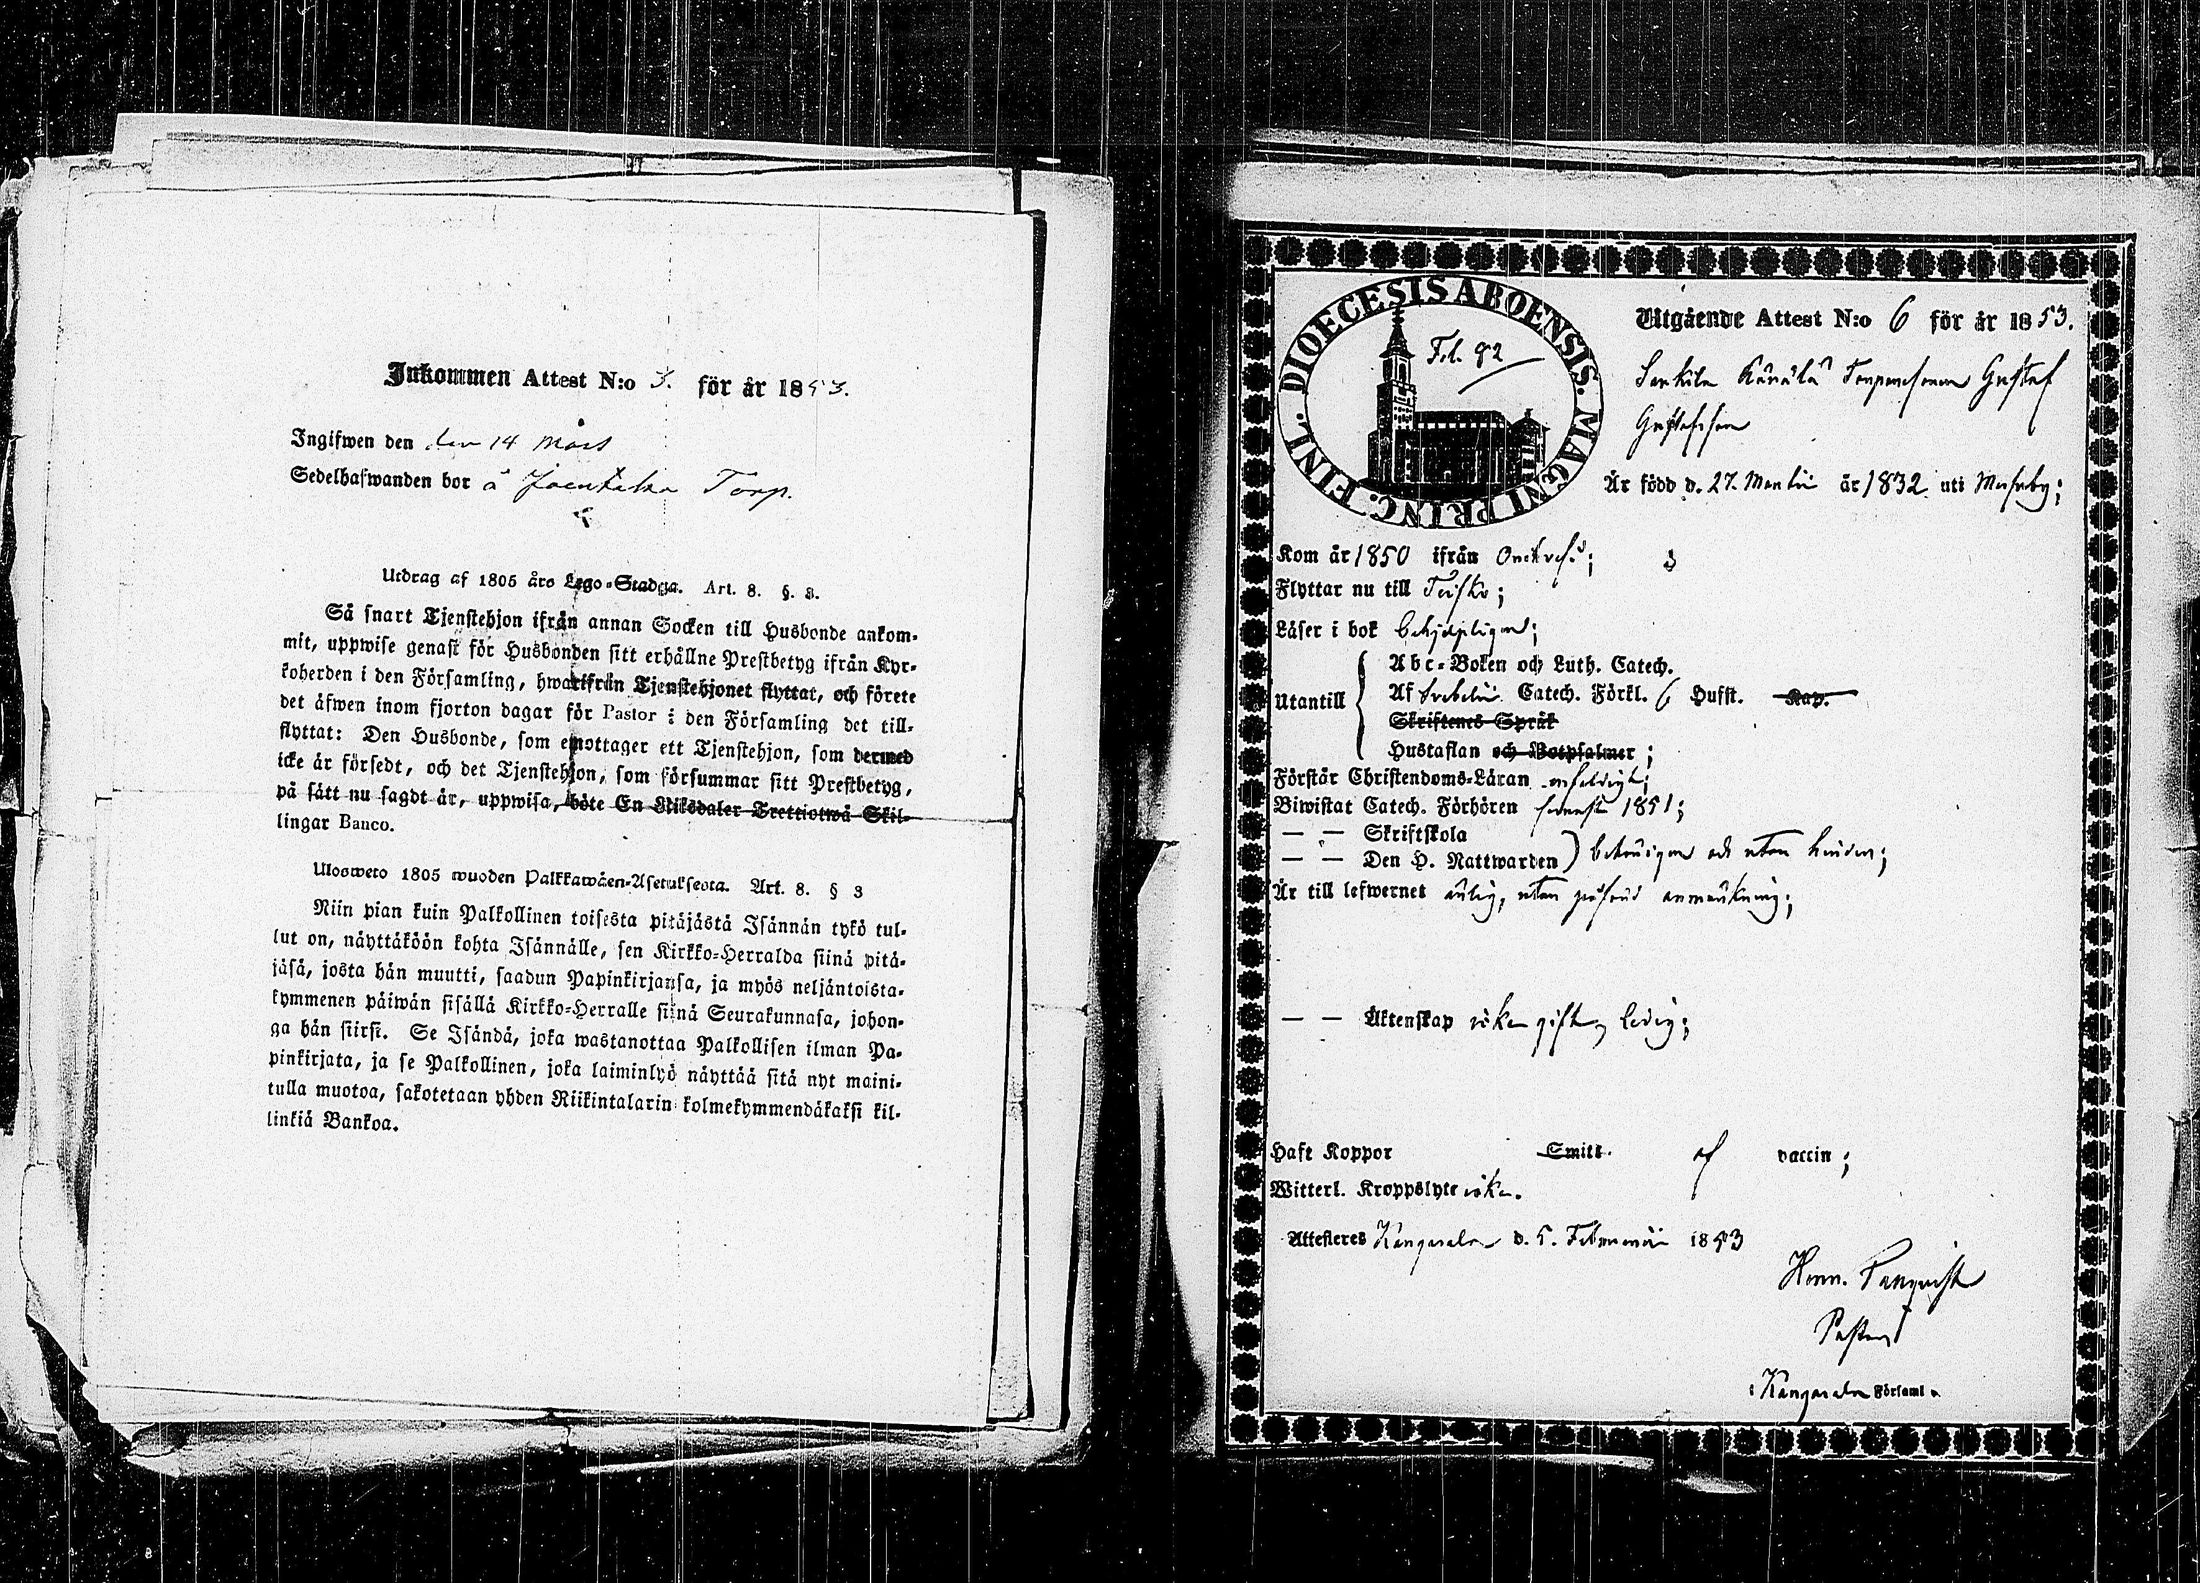 Inkommen Attest N:o 3. för år 1853.
Ingifwen den den 14 Mars
Sedelhafwanden bor å Torp.
Utdrag af 1805 års Lego-Stadga. Art. 8. §. 3.
Så snart Tjenstehjon ifrån annan Socken till Husbonde ankom-
mit, uppwise genast för Husbonden sitt erhållne Prestbetyg ifrån Kyr-
koherden i den Församling, hwarifrån Tjenstehjonet flyttat, och förete
det äfwen inom fjorton dagar för Pastor i den Församling det till-
flyttat: Den Husbonde, som emottager ett Tjenstehjon, som dermed
icke är försedt, och det Tjenstehjon, som försummar sitt Prestbetyg,
på sätt nu sagdt är, uppwisa, böte En Riksdaler Trettiotwå Skil-
lingar Banco.
Ulosweto 1805 wuoden Palkkawäen-Asetuksesta. Art. 8. § 3
Niin pian kuin Palkollinen toisesta pitäjästä Isännän tykö tul-
lut on, näyttäköön kohta Isännälle, sen Kirkko-Herralda siinä pitä-
jäsä, josta hän muutti, saadun Papinkirjansa, ja myös neljäntoista-
kymmenen päiwän sisällä Kirkko-Herralle siinä Seurakunnasa, johon-
ga hän siirsi. Se Isändä, joka wastanottaa Palkollisen ilman Pa-
pinkirjata, ja se Palkollinen, joka laiminlyö näyttää sitä nyt maini-
tulla muotoa, sakotetaan yhden Riikintalarin kolmekymmendäkaksi kil-
linkiä Bankoa.
DIOECESIS ABOENSIS. MAGNI PRINC. FINL.
Fol. 92
Utgående Attest N:o 6 för år 1853.
Sorkila Torparesonen Gustaf
Gustafsson
Är född d. 27. Martii år 1832 uti Messuby;
Kom år 1850 ifrån ;
Flyttar nu till Teisko;
Läser i bok behjelpligen;
Utantill
Abc-Boken och Luth. Catech.
Af Svebelii Catech. Förkl. 6 Hufst. Kap.
Skriftenes Språk
Hustaflan och Botpsalmer;
Förstår Christendoms-Läran enfaldigt;
Biwistat Catech. Förhören senast 1851;
— — Skriftskola
— — Den H. Nattwarden ) behörigen och utan hinder;
Är till lefwernet ärlig, utan påförd anmärkning;
— — Äktenskap icke gift, ledig;
Haft Koppor Smitt. af vaccin;
Witterl. Kroppslyte icke.
Attesteras Kangasala d. 5. Februarii 1853
Herm.
Pastor
i Kangasala Församl.